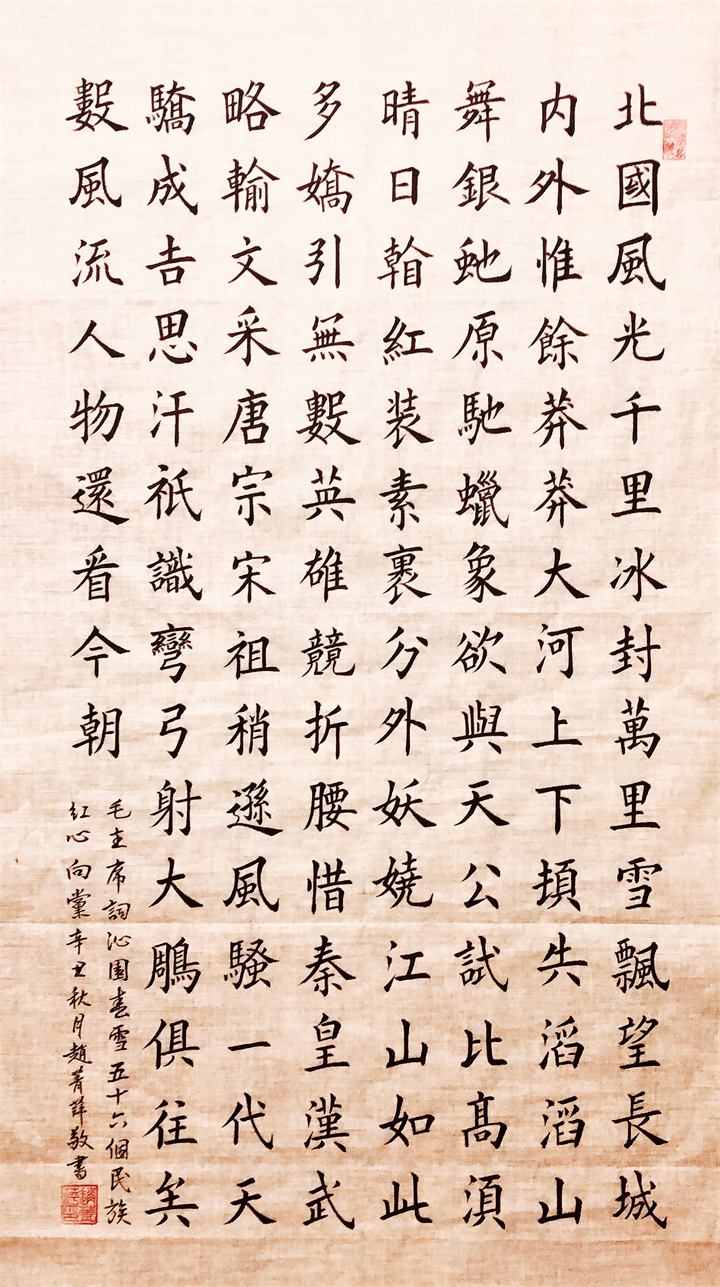 北國風光千里冰封萬里雪飄望長城
内外惟餘莽莽大河上下頓失滔滔山
舞銀虵原馳蠟象欲與天公試比髙須
晴日看紅装素裹分外妖嬈江山如此
多嬌引無數英雄競折腰惜秦皇漢武
略輸文采唐宗宋祖稍遜風騷一代天
驕成吉思汗祇識彎弓射大鵰俱往矣
數風流人物還看今朝
毛主席詞沁園春雪五十六個民族
紅心向黨辛丑秋月趙菁敬書